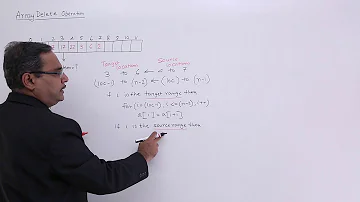 Array Delete Operation
0 1 2 3 4 5 6 7 8 9
17 22 3 6 2
Target Locations Source Locations
3 to 6 ← 4 to 7
(loc-1) to (n-2) ← (loc) to (n-1)
if i is the target range then
for (i=(loc-1), i<=(n-2), i++)
a[i]=a[i+1]
if i is the source range then